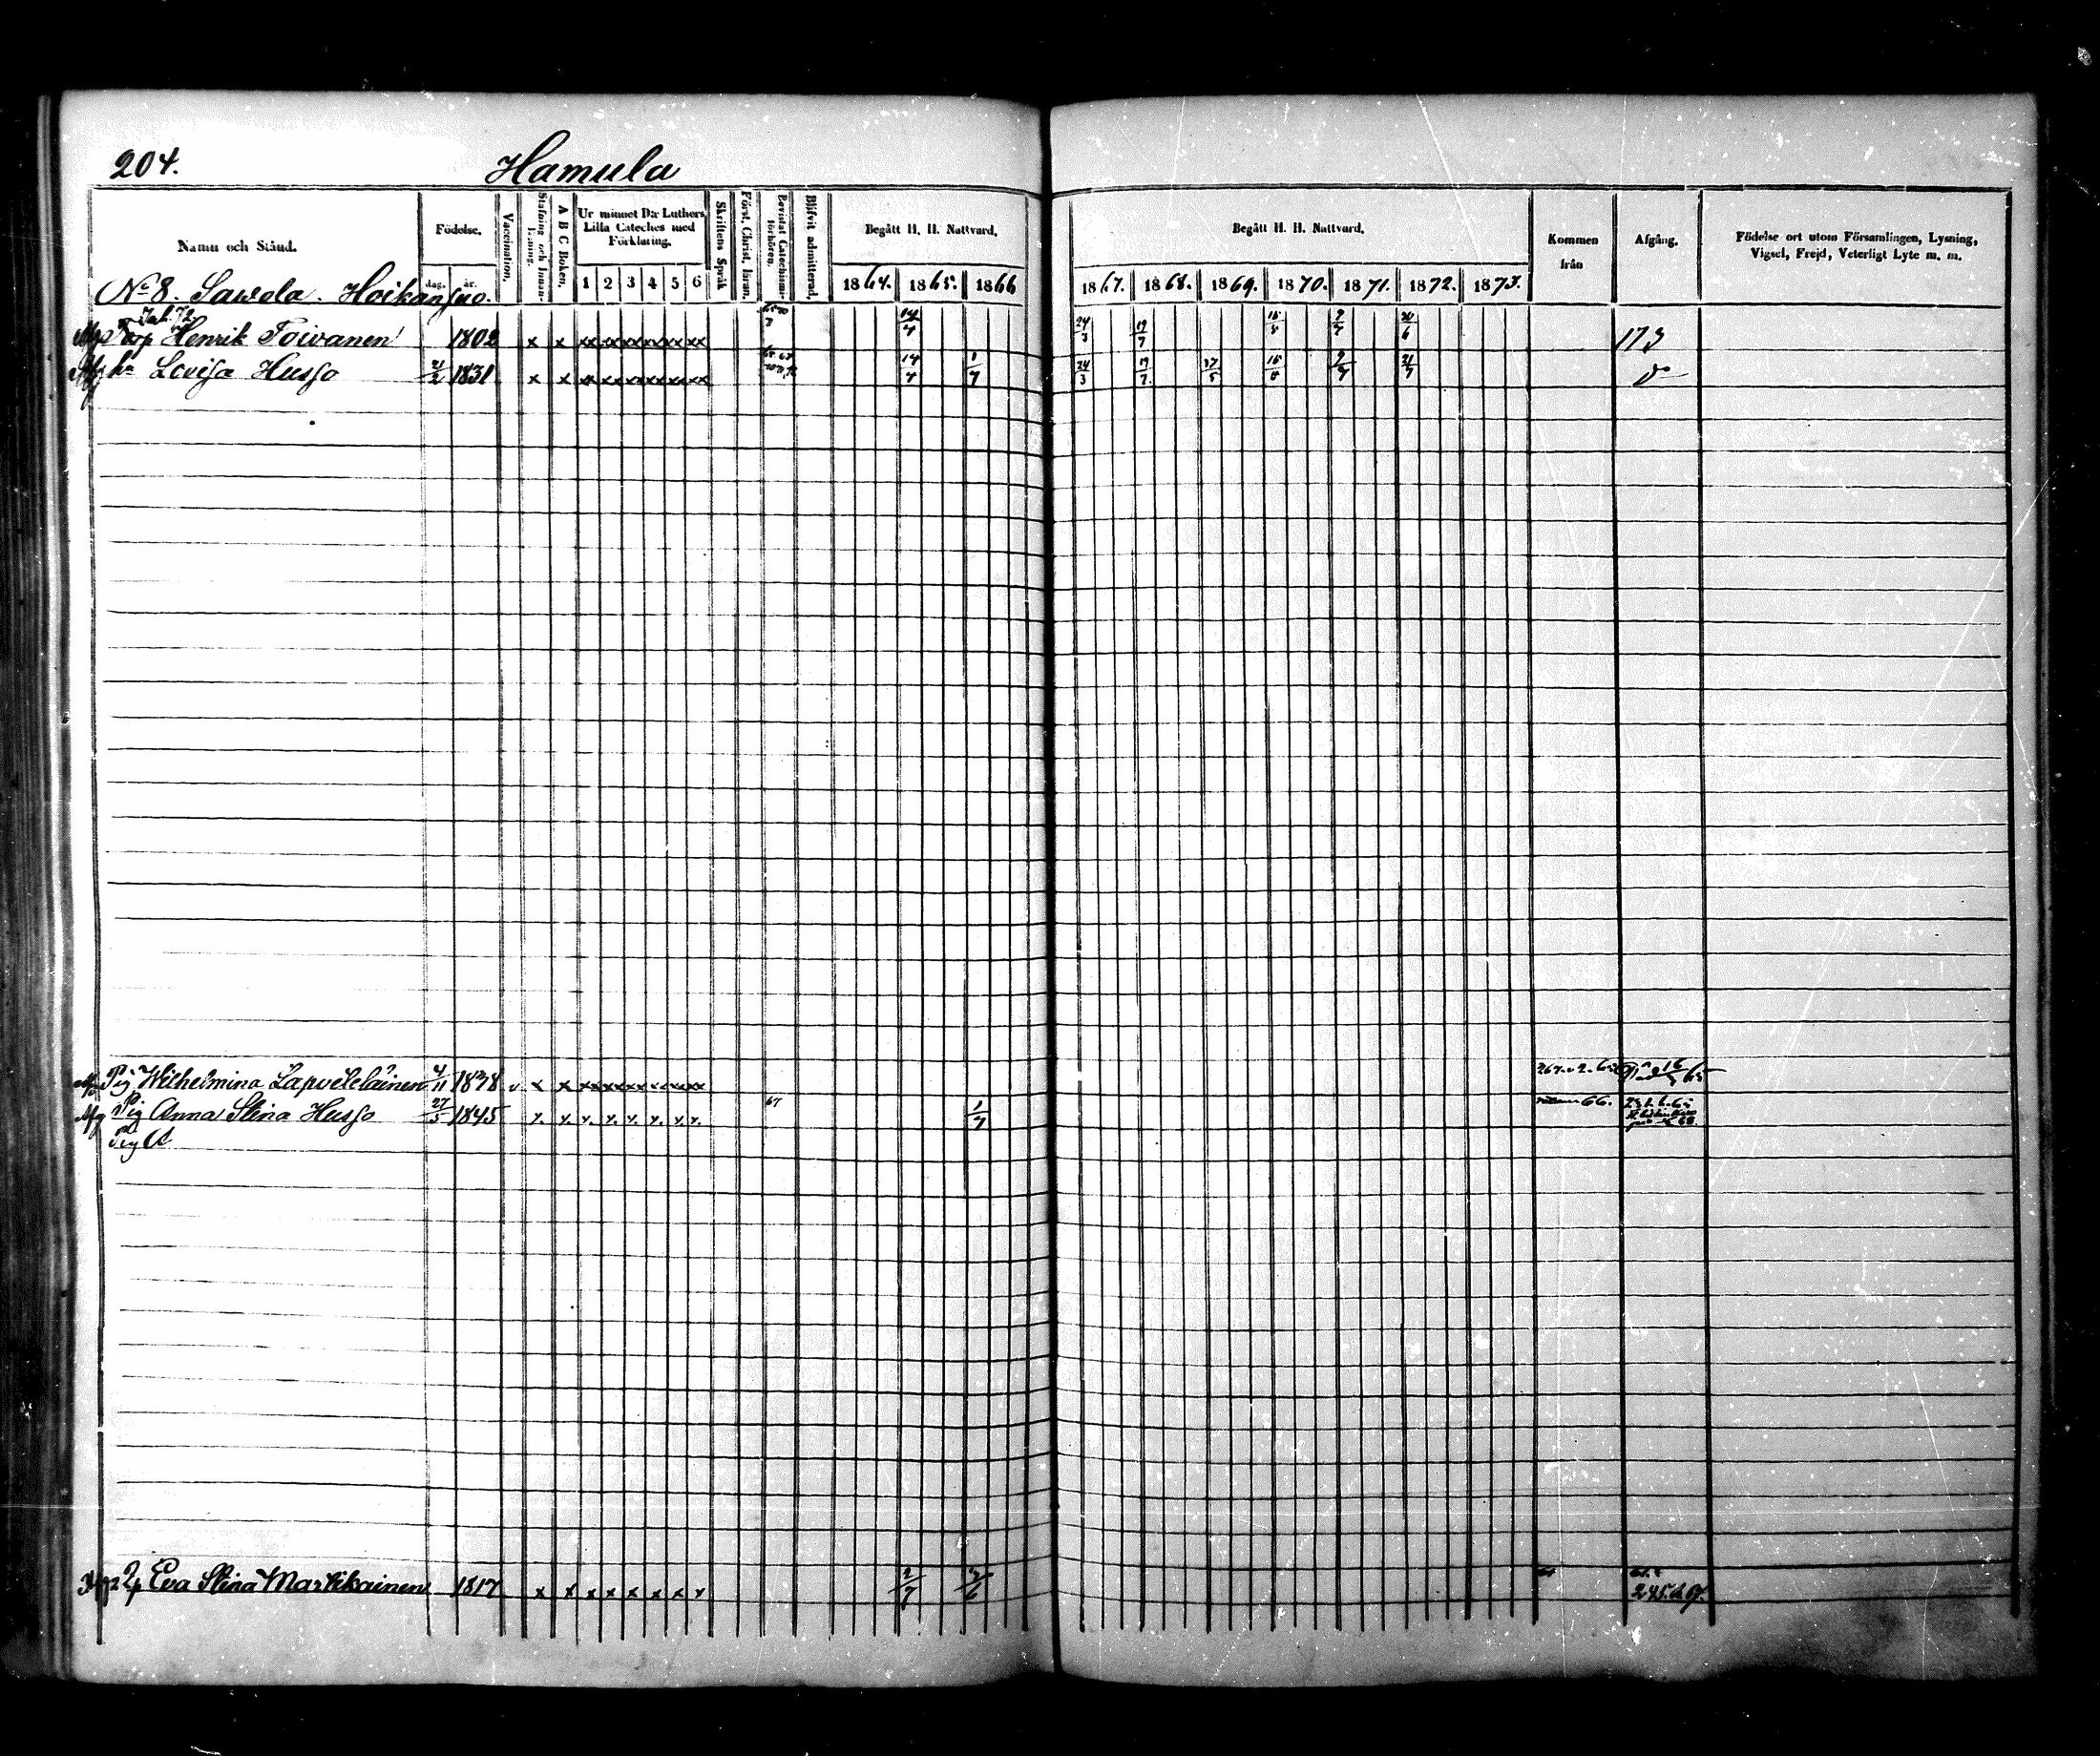 204. Hamula
Namn och Stånd. Födelse, dag. år. Vaccination, Stafning och Innan-läsning. A B C Boken, Ur minnet D:r Luthers Lilla Cateches med Förklaring. 1 2 3 4 5 6 Skriftens Språk Först. Christ. läran, Bevistat Catechismi-förhören. Blifvit admitterad, Begått H. H. Nattvard, 1864. 1865. 1866 Begått H. H. Nattvard, 1867. 1868. 1869. 1870. 1871. 1872. 1873. Kommen från Afgång, Födelse ort utom Församlingen, Lysning, Vigsel, Frejd, Veterligt Lyte m. m.
No 8. Sawola. Hoikansuo.
Inh. 72
Torp Henrik Toivanen 1802 x x xx xx xx xx xx xx 14/4 24/3 19/7 15/5 9/7 20/6 173
hu Lovisa Husso 21/2 1831 x x xx xx xx xx xx xx 14/4 1/7 24/3 19/7 27/5 15/5 9/7 21/7
Pig Wilhelmina Lapveteläinen 4/11 1838 v x x
Pig Anna Stina Husso 27/5 1845 x. x. x. x. x. x. x. x. 67 1/7 66.
Pig A
Eva Stina Martikainen 1817 x x x x x x x x 2/7 3/6 245.b.67.